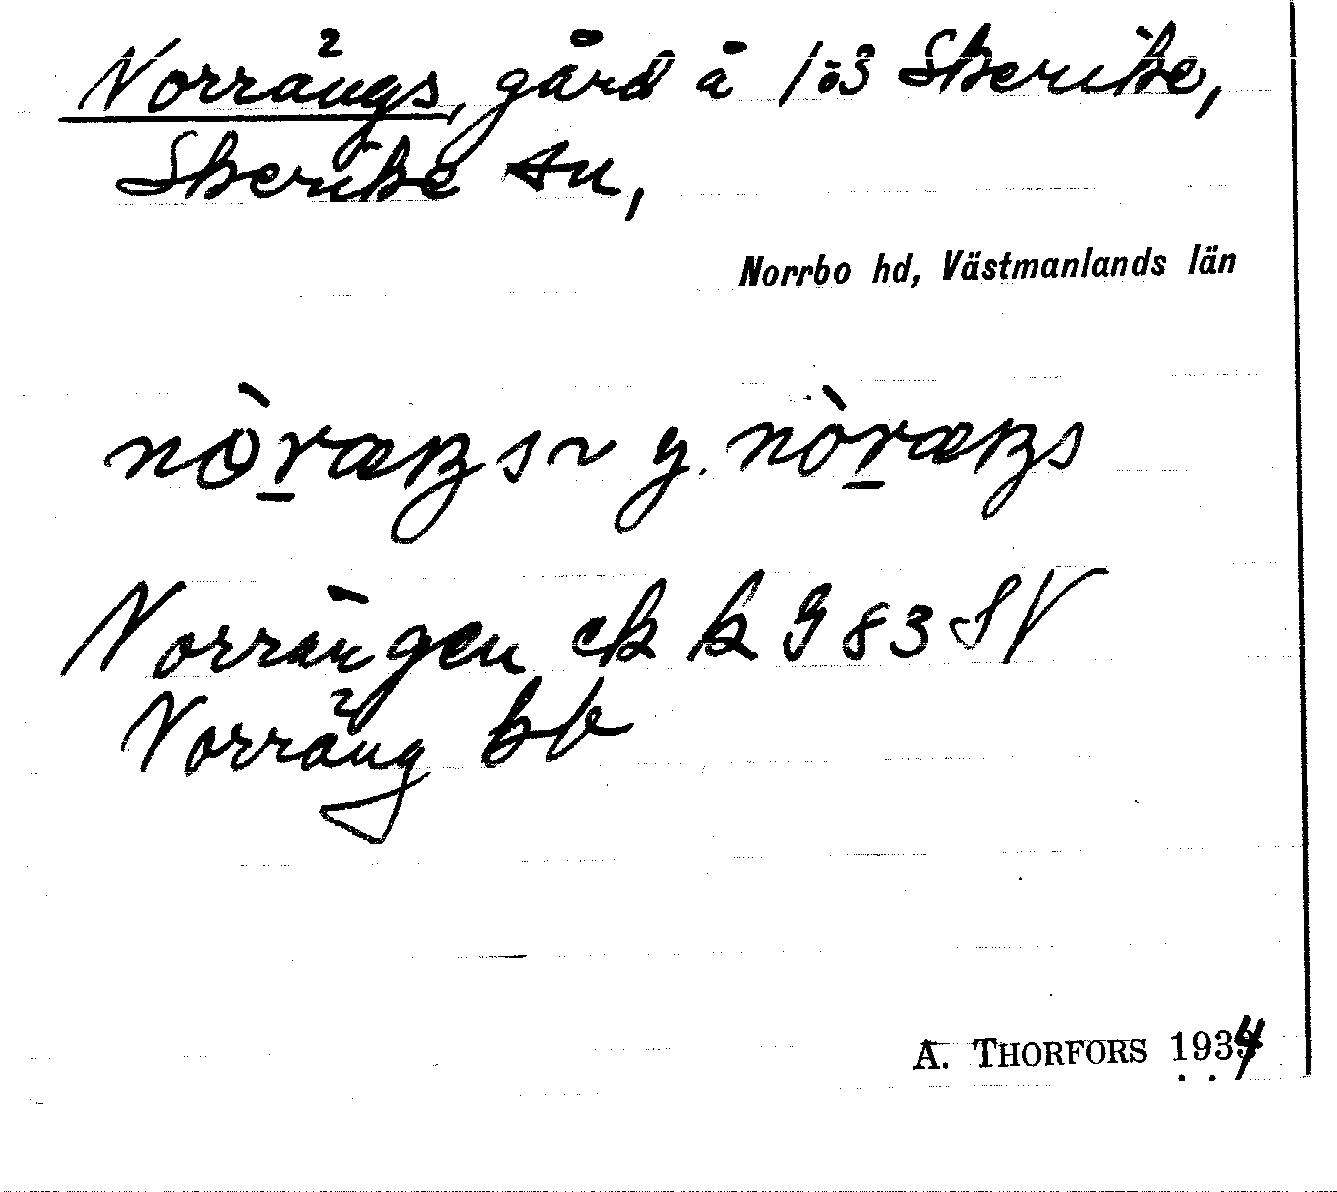 Norrängs, gård å 1ö3 Skerike,
Skerike sn,
Norrbo hd, Västmanlands län
Norrängen ek k J 83 SV
Norräng bk
A. THORFORS 1934